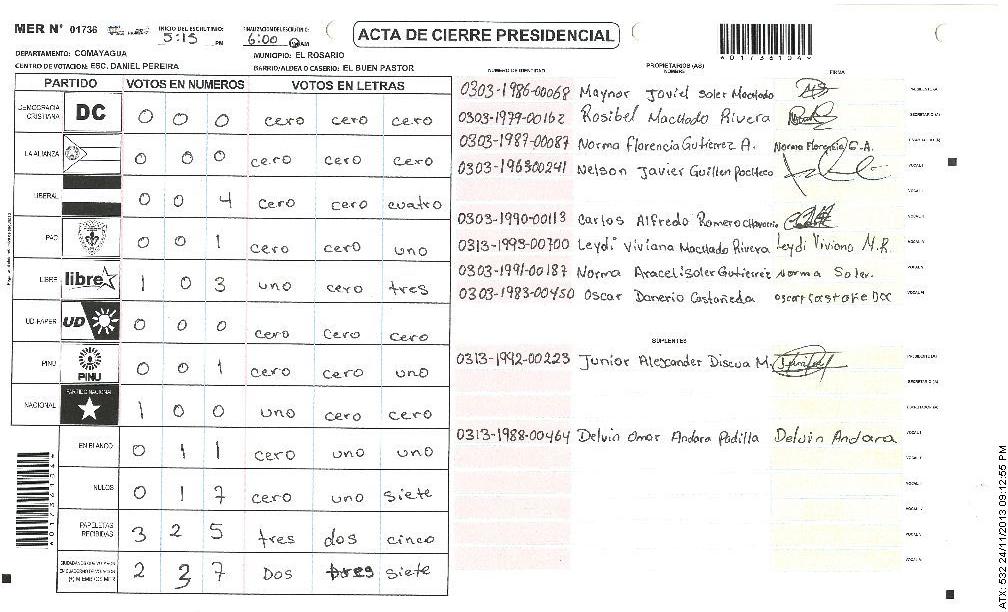 MER N° 01736
INICIO DEL ESCRUTINIO: 5:15 PM
FINALIZACION DEL ESCRUTINIO: 6:00 AM
ACTA DE CIERRE PRESIDENCIAL
DEPARTAMENTO: COMAYAGUA
MUNICIPIO: EL ROSARIO
CENTRO DE VOTACION: ESC. DANIEL PEREIRA
BARRIO/ALDEA O CASERIO: EL BUEN PASTOR
PARTIDO VOTOS EN NUMEROS VOTOS EN LETRAS
DEMOCRACIA CRISTIANA DC 0 0 0 cero cero cero
LA ALIANZA 0 0 0 cero cero cero
LIBERAL 0 0 4 cero cero cuatro
PAC 0 0 1 cero cero uno
LIBRE libre 1 0 3 uno cero tres
UD-FAPER UD 0 0 0 cero cero cero
PINU PINU 0 0 1 cero cero uno
NACIONAL PARTIDO NACIONAL 1 0 0 uno cero cero
EN BLANCO 0 1 1 cero uno uno
NULOS 0 1 7 cero uno siete
PAPELETAS RECIBIDAS 3 2 5 tres dos cinco
2 3 7 Dos tres siete
NUMERO DE IDENTIDAD PROPIETARIOS (AS) NOMBRE FIRMA
0303-1986-00068 Maynor Javiel Soler Machado
0303-1979-00162 Rosibel Machado Rivera
0303-1987-00087 Norma Florencia Gutierrez A. Norma Florencia G.A.
0303-196500241 Nelson Javier Guillen Pacheco
0303-1990-00113 Carlos Alfredo Romero
0313-1993-00700 Leydi Viviana Machado Rivera Leydi Viviana M.R.
0303-1991-00187 Norma Araceli Soler Gutierrez Norma Soler.
0303-1983-00450 Oscar Danerio Castañeda
SUPLENTES
0313-1992-00223 Junior Alexander Discua M.
0313-1988-00464 Delvin Omar Andara Padilla Delvin Andara
ATX: 532 24/11/2013 09:12:55 PM